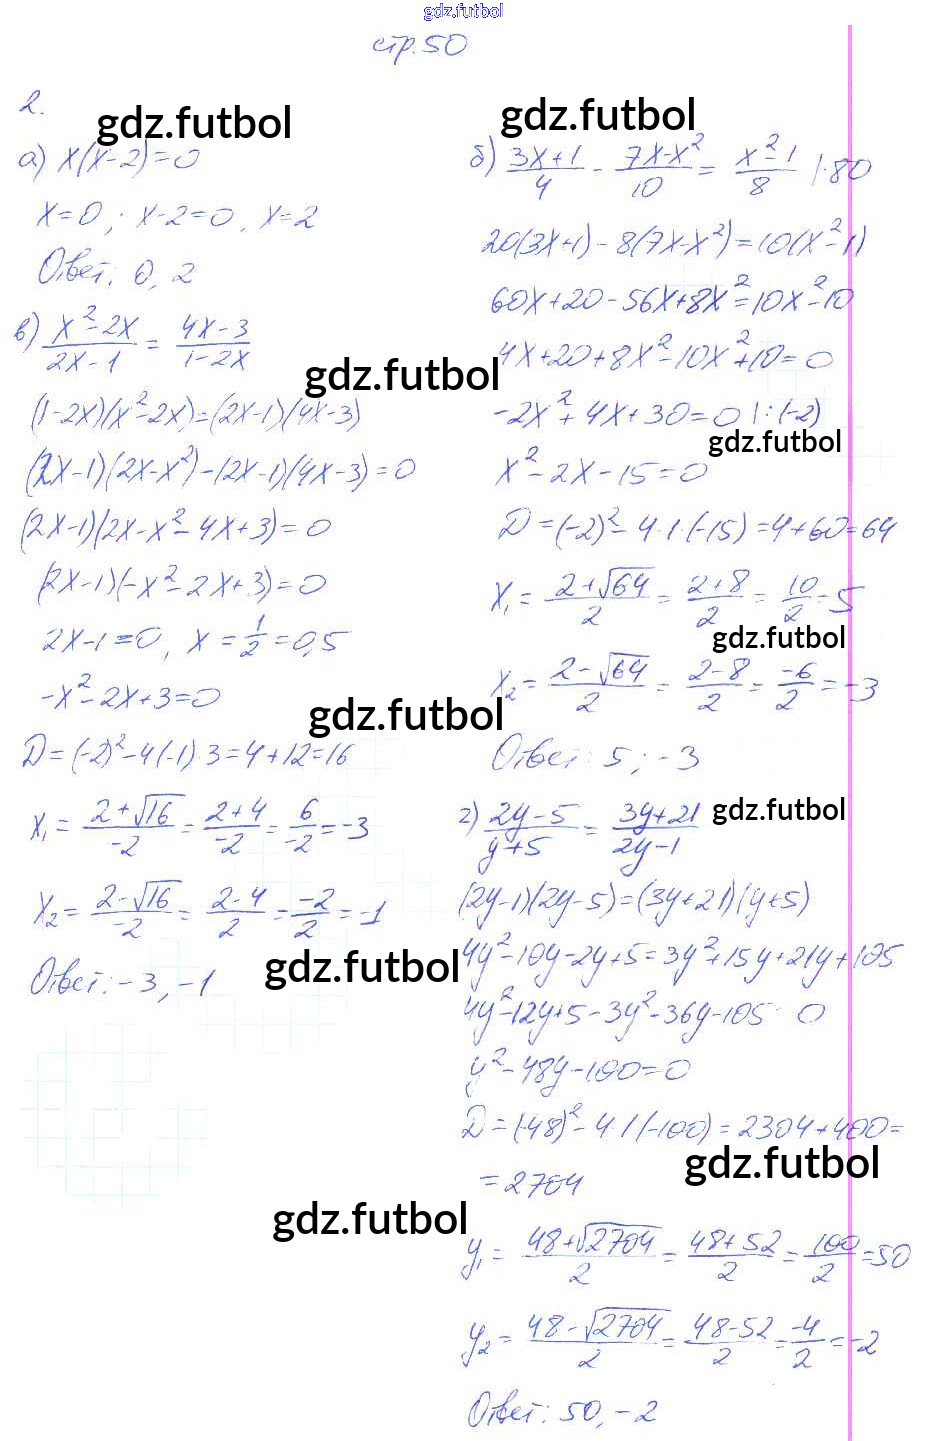 gdz.futbol
стр.50
2.
gdz.futbol
а) x(x-2)=0
x=0 ; x-2=0, x=2
Ответ: 0, 2
в) (x²-2x)/(2x-1) = (4x-3)/(1-2x)
gdz.futbol
(1-2x)(x²-2x)=(2x-1)(4x-3)
(2x-1)(2x-x²)-(2x-1)(4x-3)=0
(2x-1)(2x-x²-4x+3)=0
(2x-1)(-x²-2x+3)=0
2x-1=0, x=1/2=0,5
-x²-2x+3=0
gdz.futbol
D=(-2)²-4(-1)·3=4+12=16
x₁=(2+√16)/(-2)=(2+4)/(-2)=6/(-2)=-3
x₂=(2-√16)/(-2)=(2-4)/2=(-2)/2=-1
Ответ: -3, -1
gdz.futbol
gdz.futbol
gdz.futbol
б) (3x+1)/4 - (7x-x²)/10 = (x²-1)/8 |·80
20(3x+1)-8(7x-x²)=10(x²-1)
60x+20-56x+8x²=10x²-10
4x+20+8x²-10x²+10=0
-2x²+4x+30=0 |:(-2)
gdz.futbol
x²-2x-15=0
D=(-2)²-4·1·(-15)=4+60=64
x₁=(2+√64)/2=(2+8)/2=10/2=5
gdz.futbol
x₂=(2-√64)/2=(2-8)/2=(-6)/2=-3
Ответ: 5 ; -3
г) (2y-5)/(y+5)=(3y+21)/(2y-1)
gdz.futbol
(2y-1)(2y-5)=(3y+21)(y+5)
4y²-10y-2y+5=3y²+15y+21y+105
4y²-12y+5-3y²-36y-105 0
y²-48y-100=0
D=(-48)²-4·1(-100)=2304+400=
gdz.futbol
=2704
y₁=(48+√2704)/2=(48+52)/2=100/2=50
y₂=(48-√2704)/2=(48-52)/2=(-4)/2=-2
Ответ: 50, -2